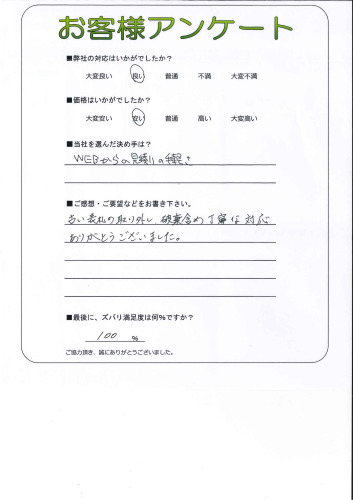 お客様アンケート
■弊社の対応はいかがでしたか？
大変良い 良い 普通 不満 大変不満
■価格はいかがでしたか？
大変安い 安い 普通 高い 大変高い
■当社を選んだ決め手は？
WEBからの見積りの手軽さ
■ご感想・ご要望などをお書き下さい。
古い表札の取り外し、破棄含め丁寧な対応
ありがとうございました。
■最後に、ズバリ満足度は何％ですか？
100 ％
ご協力頂き、誠にありがとうございました。